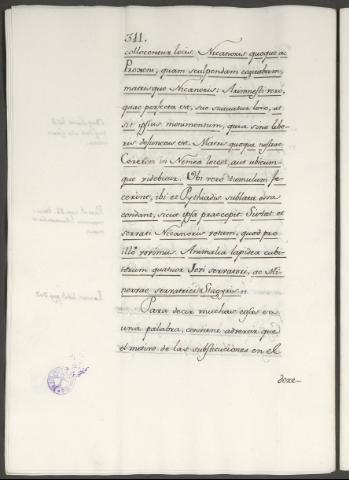 311.
collocentur locis. Nicanoris quoque ac
Proxeni, quam sculpendam cogitabam,
matrisque Nicanoris: Arimnesti vero,
quae perfecta est, suo statuatur loco, ut
sit ipsius monumentum, quia sine libe-
ris defunctus est. Matris quoque nostrae
Cererem in Nemea locet, aut ubicum-
que videbitur. Ubi vero tumulum fe-
cerint, ibi et Pythiadis sublata ossa
condant, sicut ipsa praecepit. Sistat et
servati Nicanoris votum, quod pro
illo vovimus. Animalia lapidea cubi-
torum quatuor Jovi servatori, ac Mi-
nervae servatrici Stagyris.
Para decir muchas cosas en
una palabra, conviene advertir que
el motivo de las substituciones en el